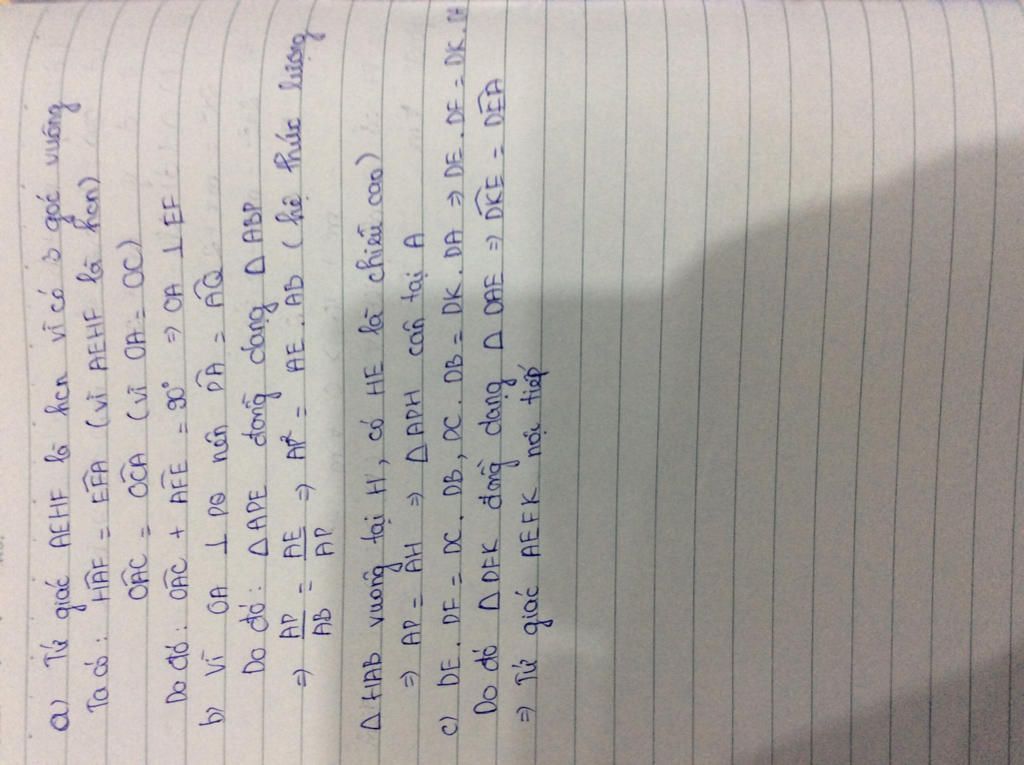 a) Tứ giác AEHF là hcn vì có 3 góc vuông
Ta có: HAF = EFA (vì AEHF là hcn)
OAC = OCA (vì OA = OC)
Do đó: OAC + AFE = 90° => OA ⊥ EF
b) Vì OA ⊥ PQ nên PA = AQ
Do đó: Δ APE đồng dạng Δ ABP
=> AP/AB = AE/AP => AP² = AE.AB (hệ thức lượng
Δ HAB vuông tại H, có HE là chiều cao)
=> AP = AH => Δ APH cân tại A
c) DE.DF = DC.DB, DC.DB = DK.DA => DE.DF = DK.DA
Do đó Δ DFK đồng dạng Δ DAE => DKE = DEA
=> Tứ giác AEFK nội tiếp